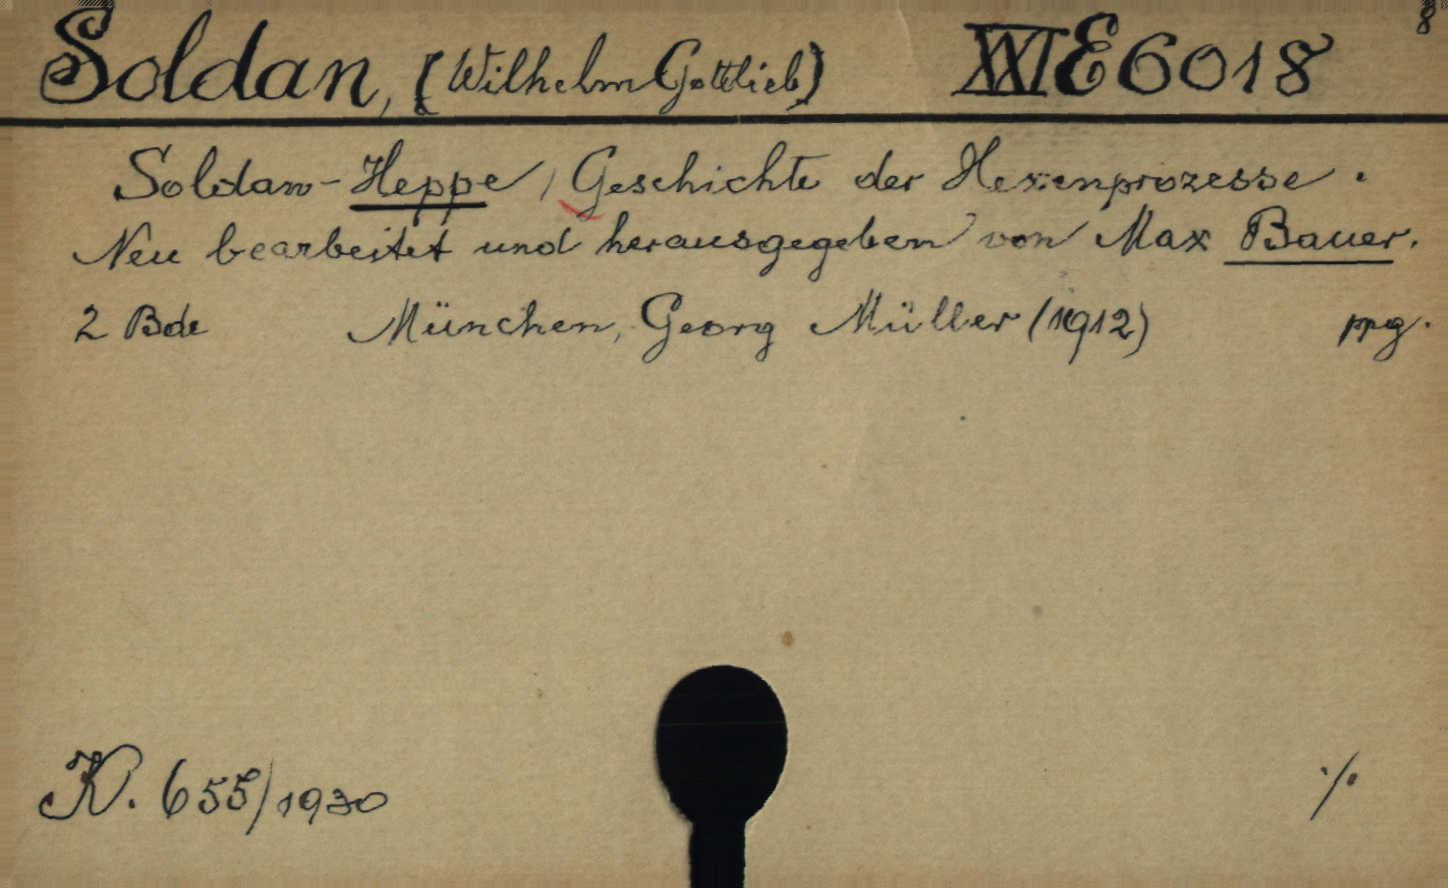 8
Soldan, [Wilhelm Gottlieb) XXI E 6018
Soldan-Heppe, Geschichte der Hexenprozesse.
Neu bearbeitet und herausgegeben von Max Bauer.
2 Bde München, Georg Müller (1912) ppg.
K. 655/1930 ·/.